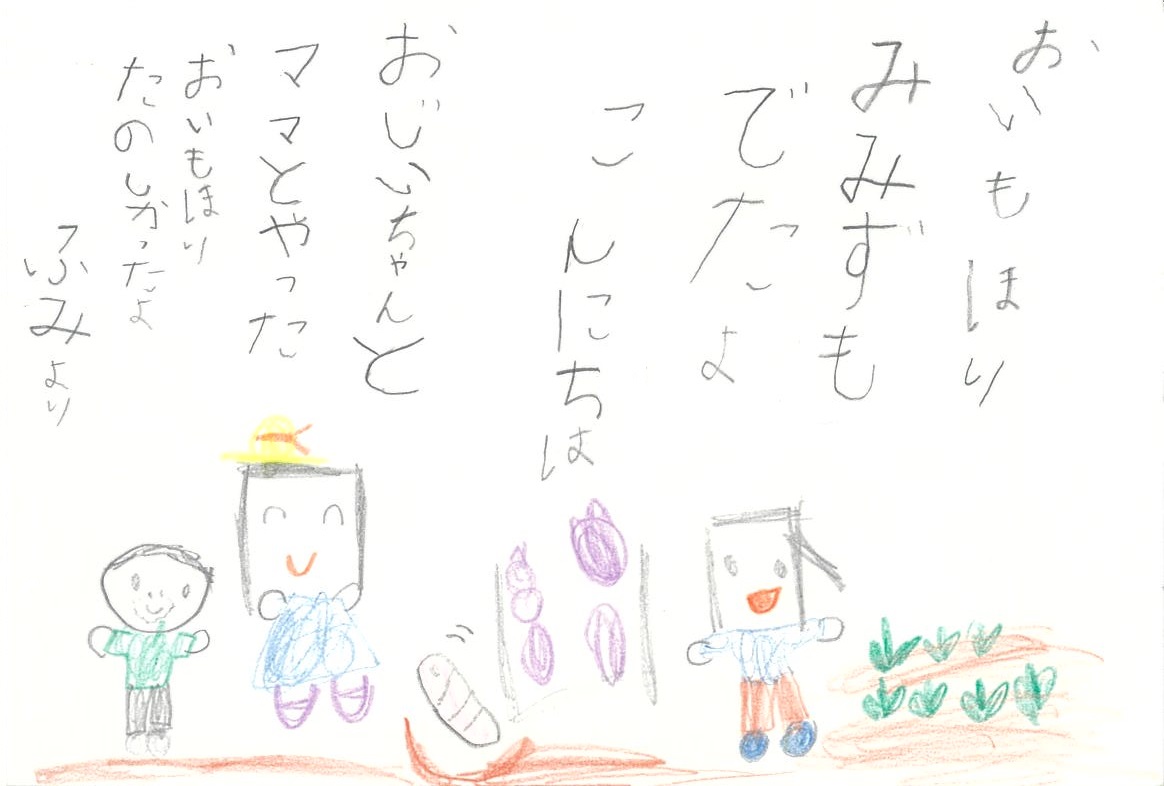 おいもほり
みみずも
でたよ
こんにちは
おじいちゃんと
ママとやった
おいもほり
たのしかったよ
ふみより